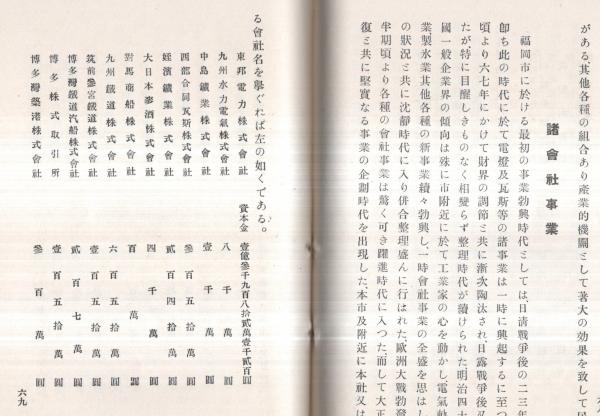 がある、其他各種の組合あり産業的機關として著大の効果を致して
諸會社事業
福岡市に於ける最初の事業勃興時代としては、日清戰爭後の二三年
卽ち此の時代に於て電燈及瓦斯等の諸事業は一時に興起するに至つ
頃より六七年にかけて財界の調節と共に漸次陶汰され、日露戰爭後
たが、特に目醒しきものなく相變らず整理時代が續けられた、明治四十
國一般企業界の傾向は殊に市附近に於て工業家の心を動かし電氣動
業製氷業其他各種の新事業續々勃興し、一時會社事業の全盛を思はし
の狀況と共に沈靜時代に入り併合整理盛んに行はれた、歐洲大戰勃發
半期頃より各種の會社事業は驚く可き躍進時代に入つた、而して大正
復と共に堅實なる事業の企劃時代を出現した、本市及附近に本社又は
る會社名を擧ぐれば左の如くである。
資本金
東邦電力株式會社 壹億參千九百八拾貳萬壹千貳百圓
九州水力電氣株式會社 八千萬圓
中島鑛業株式會社 壹千萬圓
西部合同瓦斯株式會社 參百五拾萬圓
姪濱鑛業株式會社 貳百四拾萬圓
大日本麥酒株式會社 四千萬圓
對馬商船株式會社 百萬圓
九州鐵道株式會社 六百五拾萬圓
筑前參宮鐵道株式會社 壹百五拾萬圓
博多灣鐵道汽船株式會社 貳百七萬圓
博多株式取引所 壹百五拾萬圓
博多灣築港株式會社 參百萬圓
六九